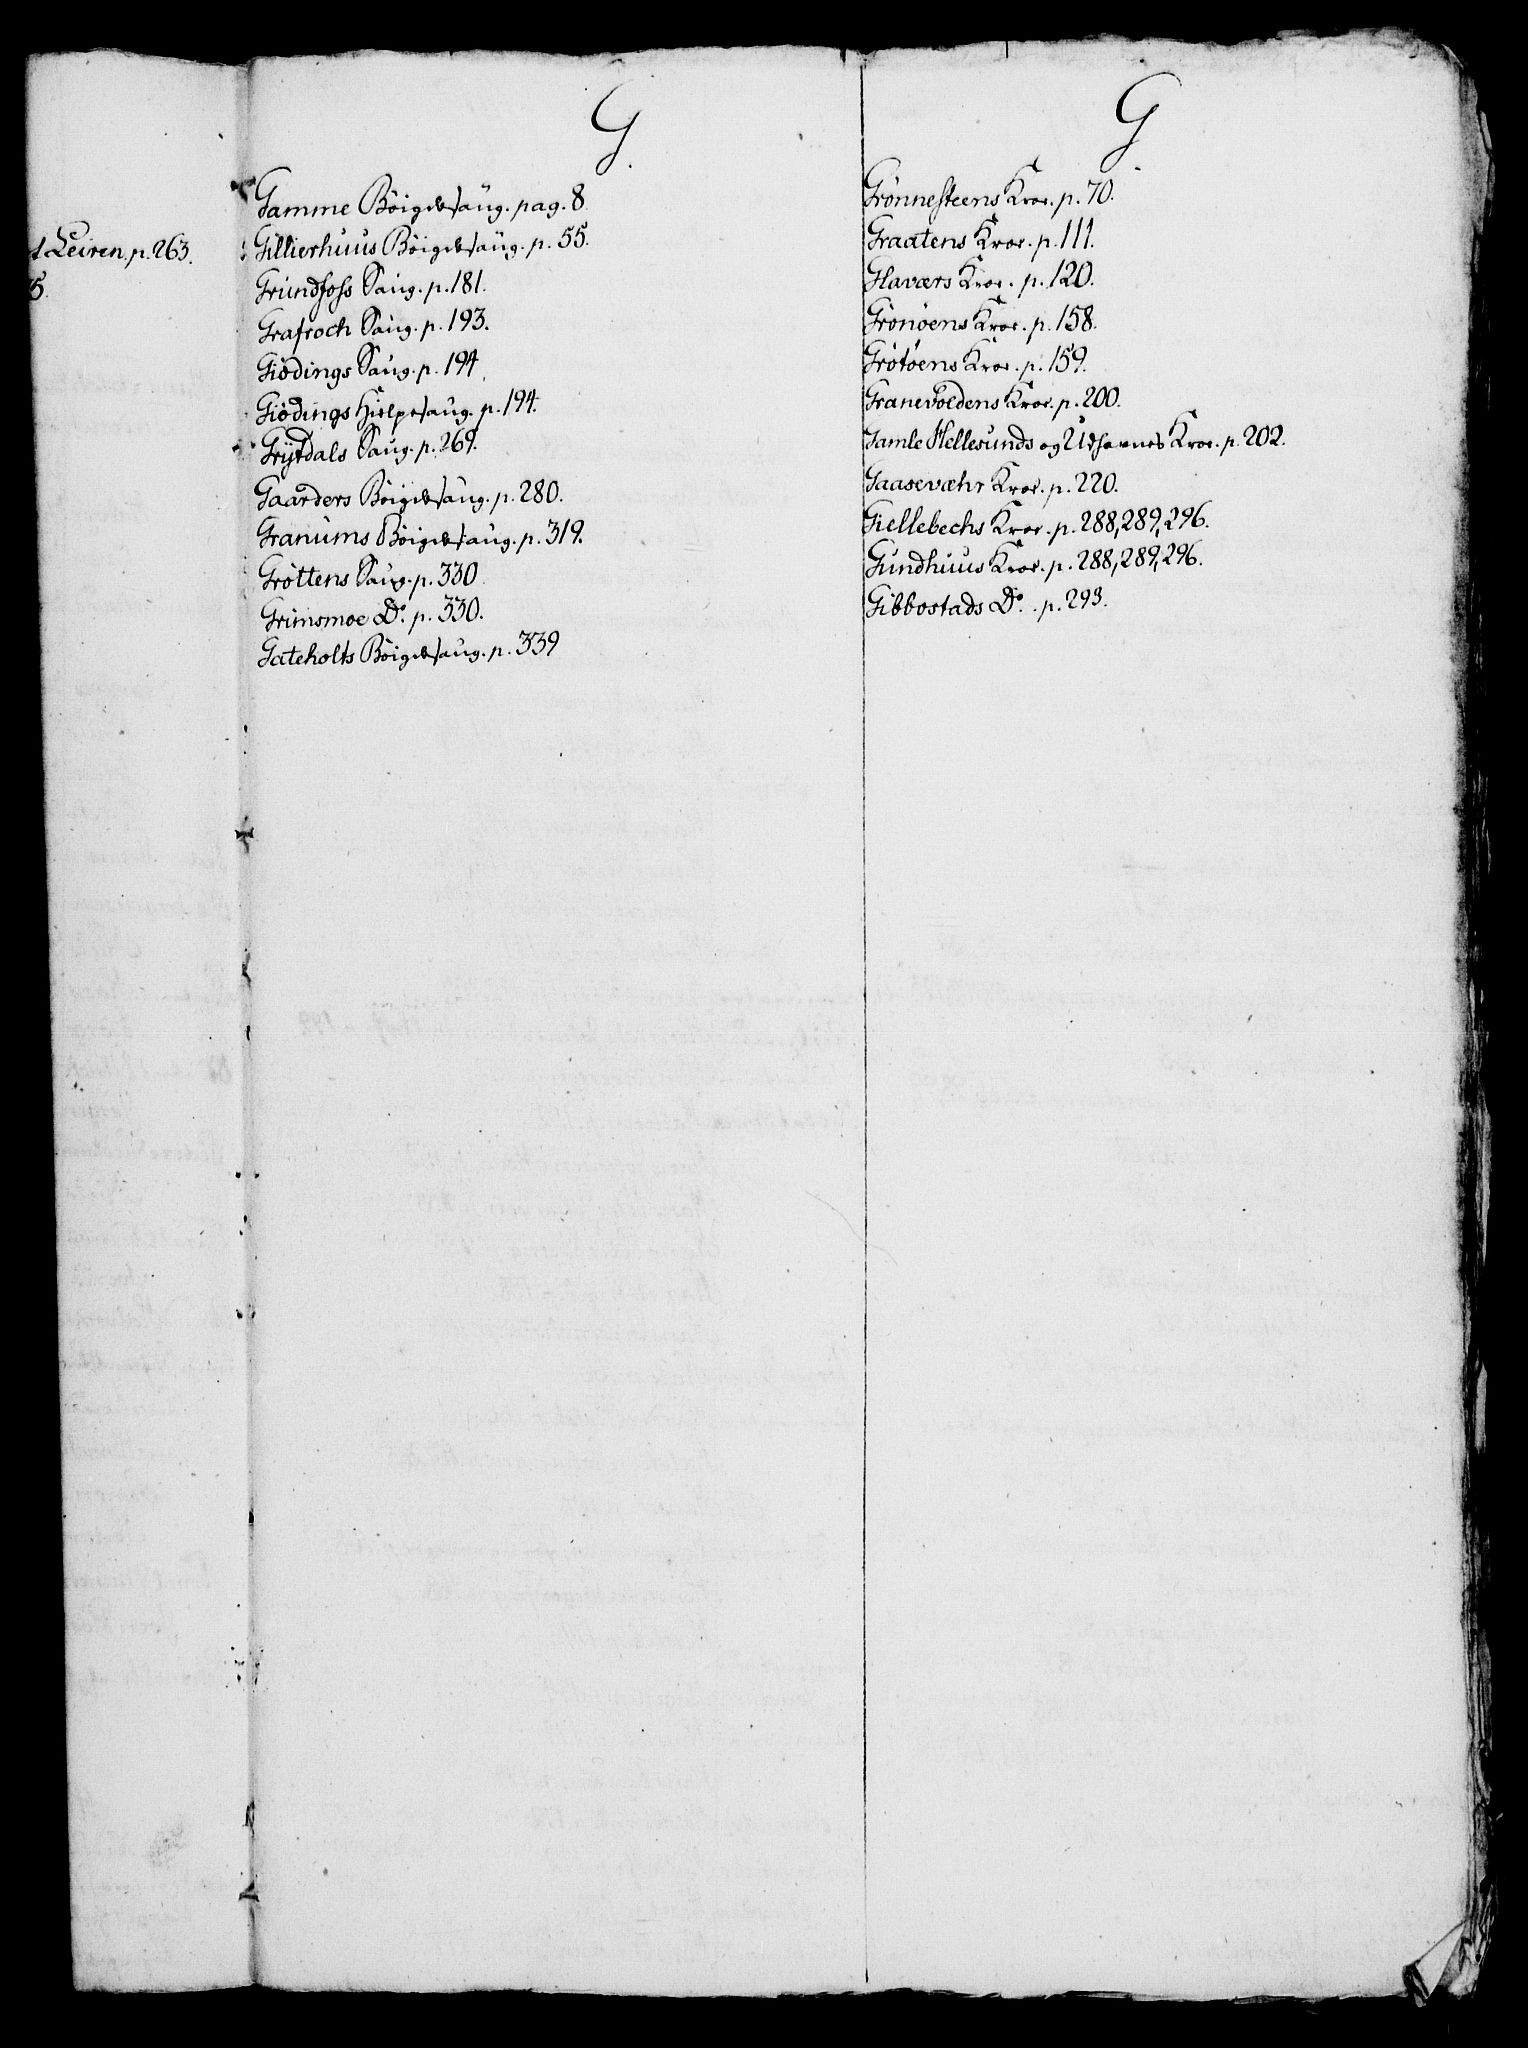 t Leiren, p. 263.
5.
G.
Gamme Böigdesaug. pag. 8
Gillierhuus Böigdesaug. p. 55.
Grundfoss Saug. p. 181.
Grafroch Saug. p. 193.
Giödings Saug. p. 194
Giödings Hielpesaug. p. 194.
Grytdals Saug. p. 269.
Gaarders Böigdesaug. p. 280.
Granums Böigdesaug. p. 319.
Gröttens Saug. p. 330
Grimsmoe Do. p. 330.
Gateholts Böigdesaug. p. 339
G
Grönnesteens Kroe. p. 70.
Graatens Kroe. p. 111.
Glaværs Kroe. p. 120.
Grönöens Kroe. p. 158.
Grötöens Kroe. p. 159.
Granevoldens Kroe. p. 200.
Gamle Hellesunds og Udhavnes Kroe. p. 202.
Gaasevæhr Kroe. p. 220.
Giellebechs Kroe. p. 288, 289, 296.
Gundhuus Kroe. p. 288, 289, 296.
Gibbostads Do. p. 293.